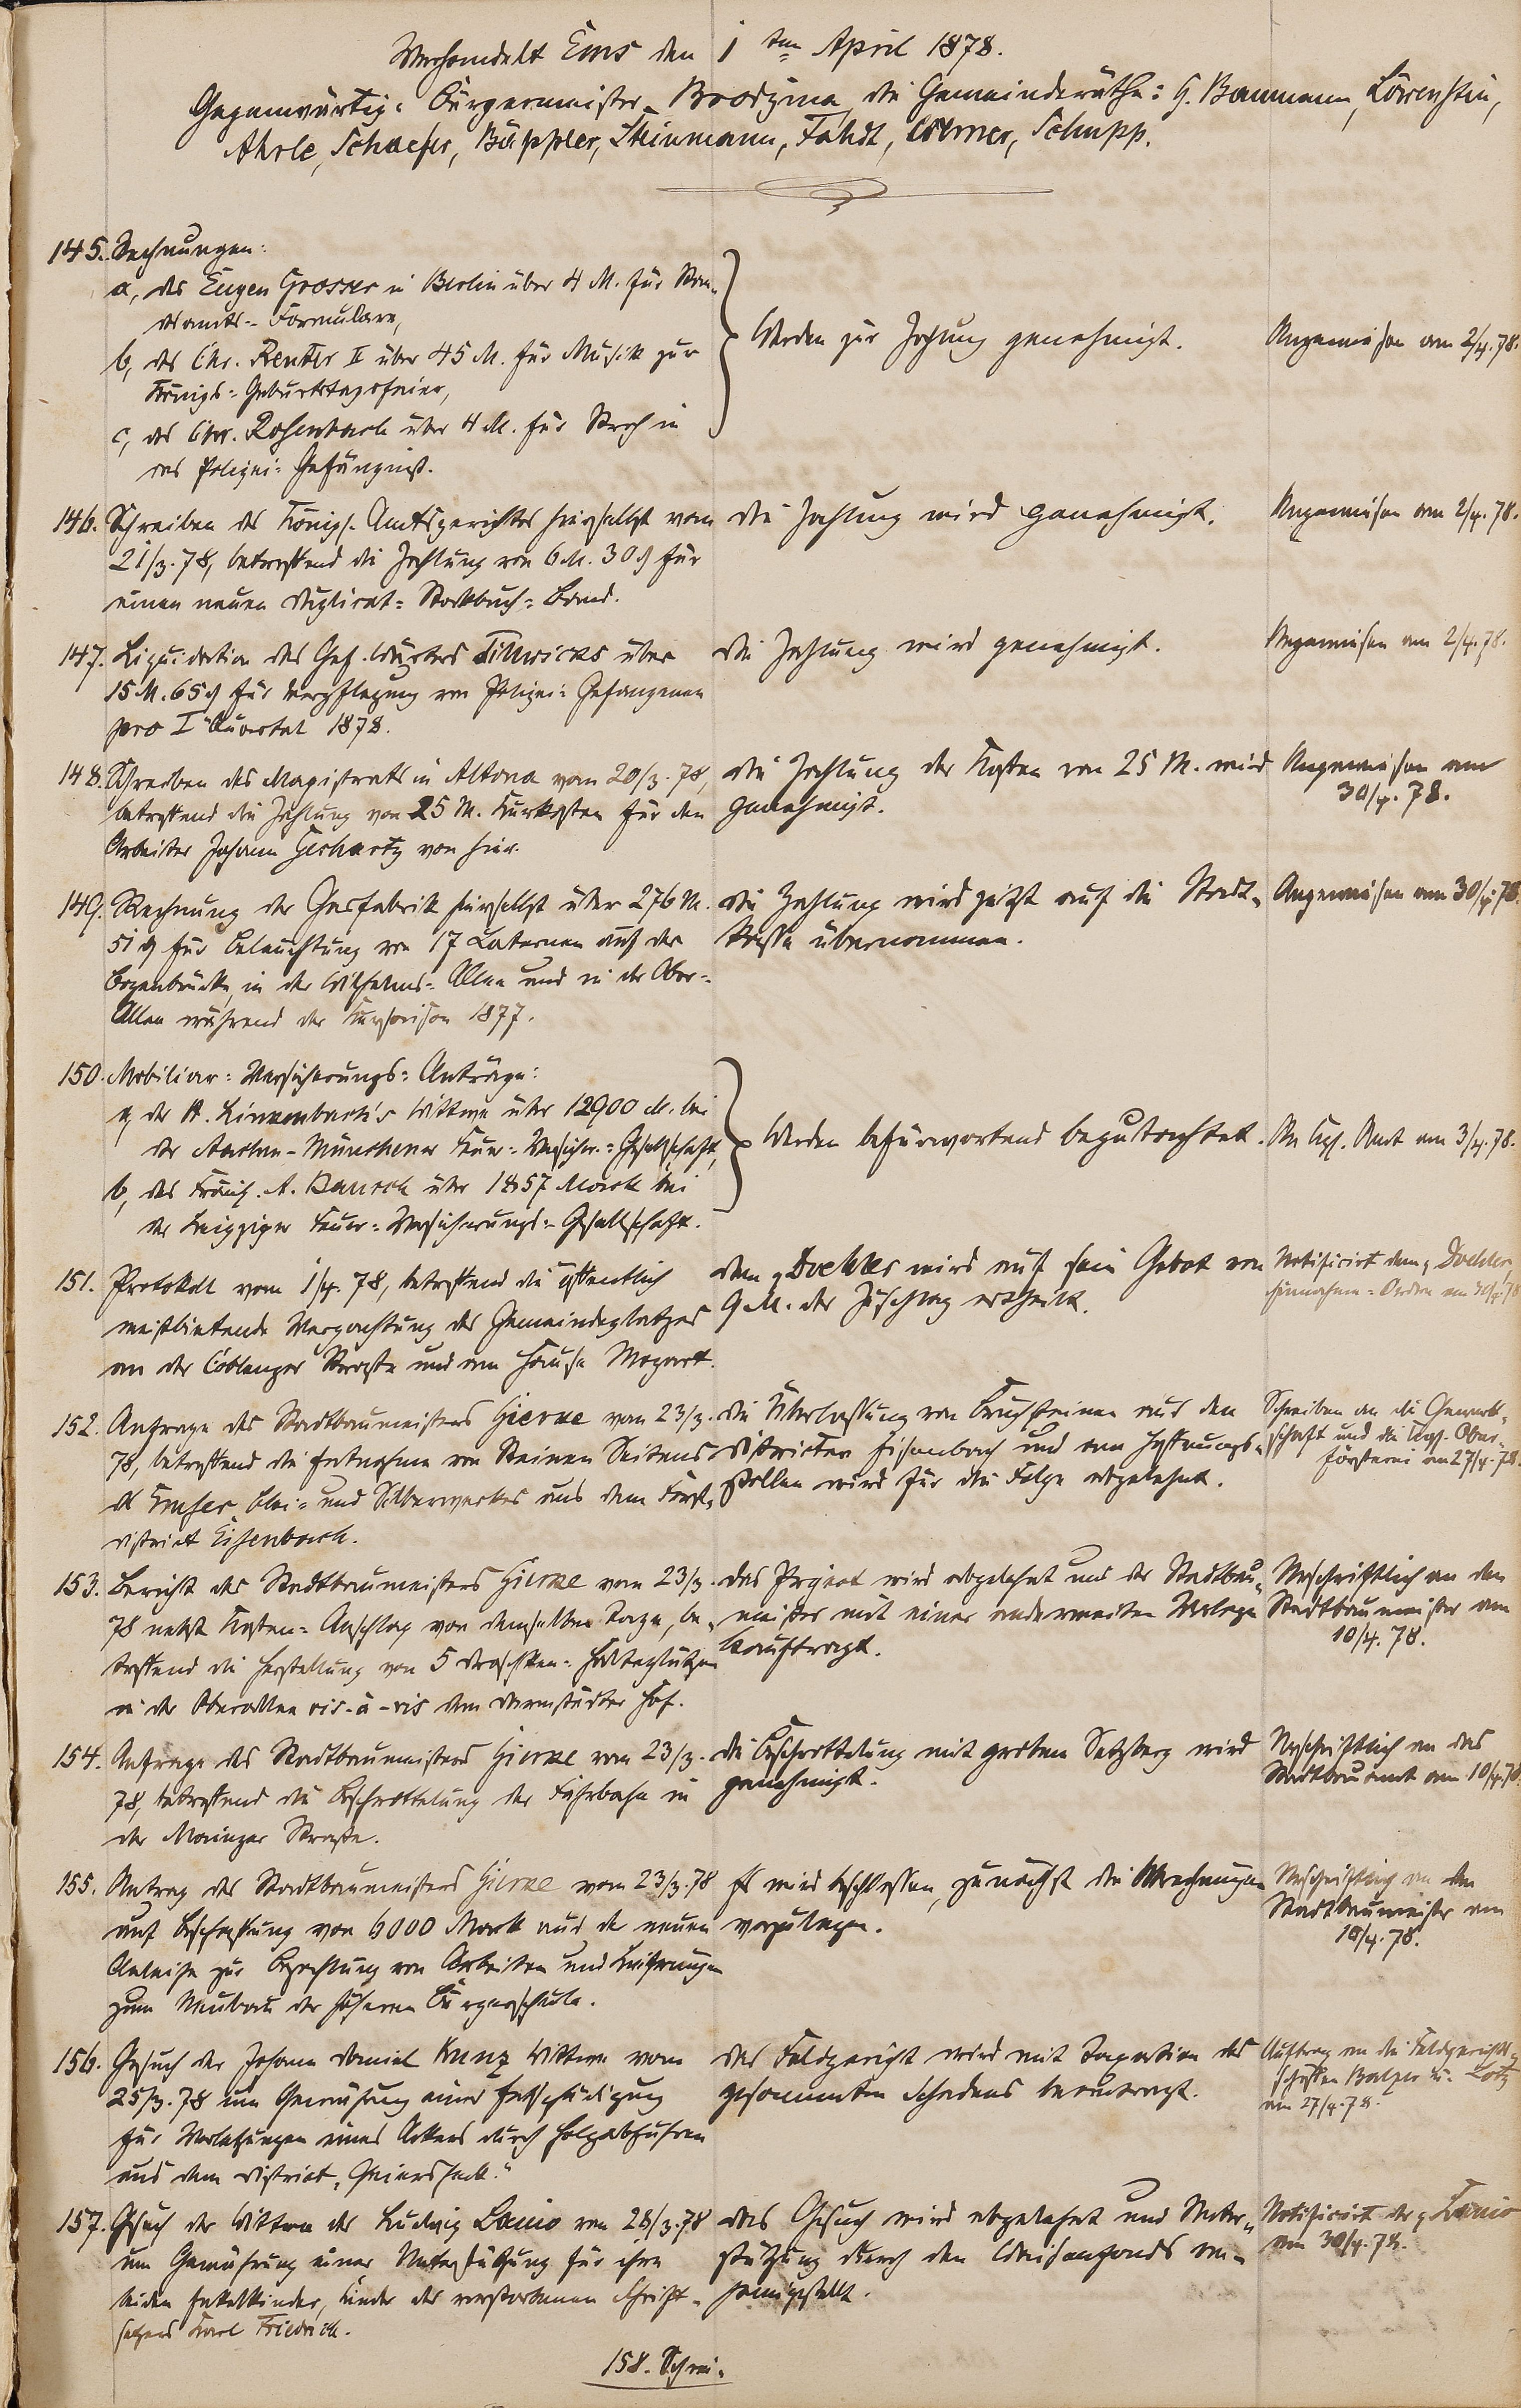 Verhandelt Ems den 1ten April 1878.
Gegenwärtig: Bürgermeister Boodzma, die Gemeinderäthe: H. Baumann, Löwenstein,
Ahrle, Schaefer, Bäppler, Steinmann, Fahdt, Schupp.
145. Rechnungen:
a, des Eugen Grosser in Berlin über 4 M. für Stan-
desamts-Formulare,
b, des Chr. Reuter II über 45 M. für Musik zur
Königs-Geburtstagsfeier,
c, des Chr. Rosenbach über 4 M. für Stroh in
das Polizei-Gefängniß.
Werden zur Zahlung genehmigt.
Angewiesen am 2/4.78.
146. Schreiben des Königl. Amtsgerichtes hierselbst vom
21/3.78, betreffend die Zahlung von 6 M. 30 ₰ für
einen neuen Duplicat-Stockbuch-Band.
Die Zahlung wird genehmigt.
Angewiesen am 2/4.78.
147. Liquidation des Gef. Wärters über
15 M. 65 ₰ für Verpflegung von Polizei-Gefangenen
pro I Quartal 1878.
Die Zahlung wird genehmigt.
Angewiesen am 2/4.78.
148. Schreiben des Magistrats in Altona vom 20/3.78,
betreffend die Zahlung von 25 M. Kurkosten für den
Arbeiter Johann Gerhartz von hier.
Die Zahlung der Kosten von 25 M. wird
genehmigt.
Angewiesen am
30/4.78.
149. Rechnung der Gasfabrik hierselbst über 276 M.
51 ₰ für Beleuchtung von 17 Laternen auf der
Bogenbrücke, in der Wilhelms-Allee und in der Ober-
Allee während der Kursaison 1877.
Die Zahlung wird jetzt auf die Stadt-
kasse übernommen.
Angewiesen am 30/4.78.
150. Mobiliar-Versicherungs-Anträge:
a, der A. Linkenbach's Wittwe über 12900 M. bei
der Aachen-Münchener Feuer-Versicher.-Gesellschaft,
b, des A. Bausch über 1857 Mark bei
der Leipziger Feuer-Versicherungs-Gesellschaft.
Werden befürwortend begutachtet.
An Kgl. Amt am 3/4.78.
151. Protokoll vom 1/4.78, betreffend die öffentlich
meistbietende Verpachtung des Gemeindeplatzes
an der Coblenzer Straße und am Hause Mozart.
Dem p. Doehler wird auf sein Gebot von
9 M. der Zuschlag ertheilt.
Notificirt dem p. Doehler,
Einnahme-Ordre am 30/4.78
152. Anfrage des Stadtbaumeisters Gierke vom 23/3.
78, betreffend die Entnahme von Steinen Seitens
des Emser Blei- und Silberwerkes aus dem Forst-
district Eisenbach.
Die Überlassung von Bruchsteinen aus den
Districten Eisenbach und am Hoffnungs-
stollen wird für die Folge abgelehnt.
Schreiben an die Gewerk-
schaft und die Kgl. Ober-
försterei am 27/4.78.
153. Bericht des Stadtbaumeisters Gierke vom 23/3.
78 nebst Kosten-Anschlag von demselben Tage, be-
treffend die Herstellung von 5 Droschken-Halteplätzen
in der Oberallee vis-à-vis dem Darmstädter Hof.
Das Project wird abgelehnt und der Stadtbau-
meister mit einer anderweiten Vorlage
beauftragt.
Urschriftlich an den
Stadtbaumeister am
10/4.78.
154. Anfrage des Stadtbaumeisters Gierke vom 23/3.
78, betreffend die Beschrottelung der Fahrbahn in
der Mainzer Straße.
Die Beschrottelung mit grobem Satzberg wird
genehmigt.
Urschriftlich an das
Stadtbauamt am 10/4.78.
155. Antrag des Stadtbaumeisters Gierke vom 23/3.78
auf Beschaffung von 6000 Mark aus der neuen
Anleihe zur Bezahlung von Arbeiten und Lieferungen
zum Neubau der höheren Bürgerschule.
Es wird beschlossen, zunächst die Abrechnungen
vorzulegen.
Urschriftlich an den
Stadtbaumeister am
10/4.78.
156. Gesuch der Johann Daniel Kunz Wittwe vom
25/3.78 um Gewährung einer Entschädigung
für Verletzungen eines Ackers durch Holzabfuhren
aus dem District
Das Feldgericht wird mit Taxation des
gesammten Schadens beauftragt.
Auftrag an die Feldgerichts-
schöffen Balzer u. Lotz
am 27/4.78.
157. Gesuch der Wittwe des Ludwig Lanio vom 28/3.78
um Gewährung einer Unterstützung für ihre
beiden Enkelkinder, Kinder des verstorbenen Schrift-
setzers Karl Friedrich.
Das Gesuch wird abgelehnt und Unter-
stützung durch den Waisenfonds an-
heimgestellt.
Notificirt der p. Lanio
am 30/4.78.
158. Schrei-